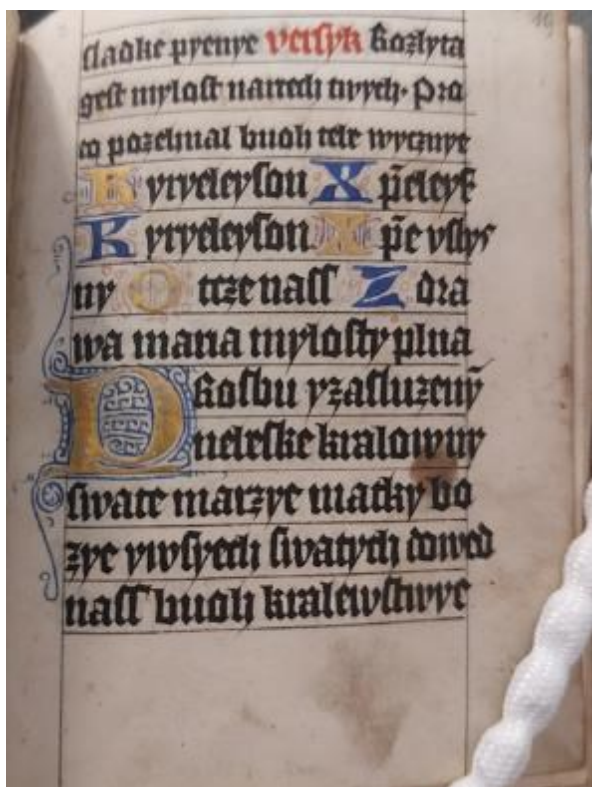 sladke pyenye versyk Rozlyta
gest mylost nartech twych· Pro
to pozehnal buoh tebe wyeznye
Kyryeleyson Xp̄eleys
Kyryeleyson Xp̄e vslys
ny Otcze nass Zdra
wa maria mylosty plna
Prosbu y zasluzeny̅
nebeske kralowny
swate marzye matky bo
zye y wssyech swatych dowed
nass buoh kralewstwye